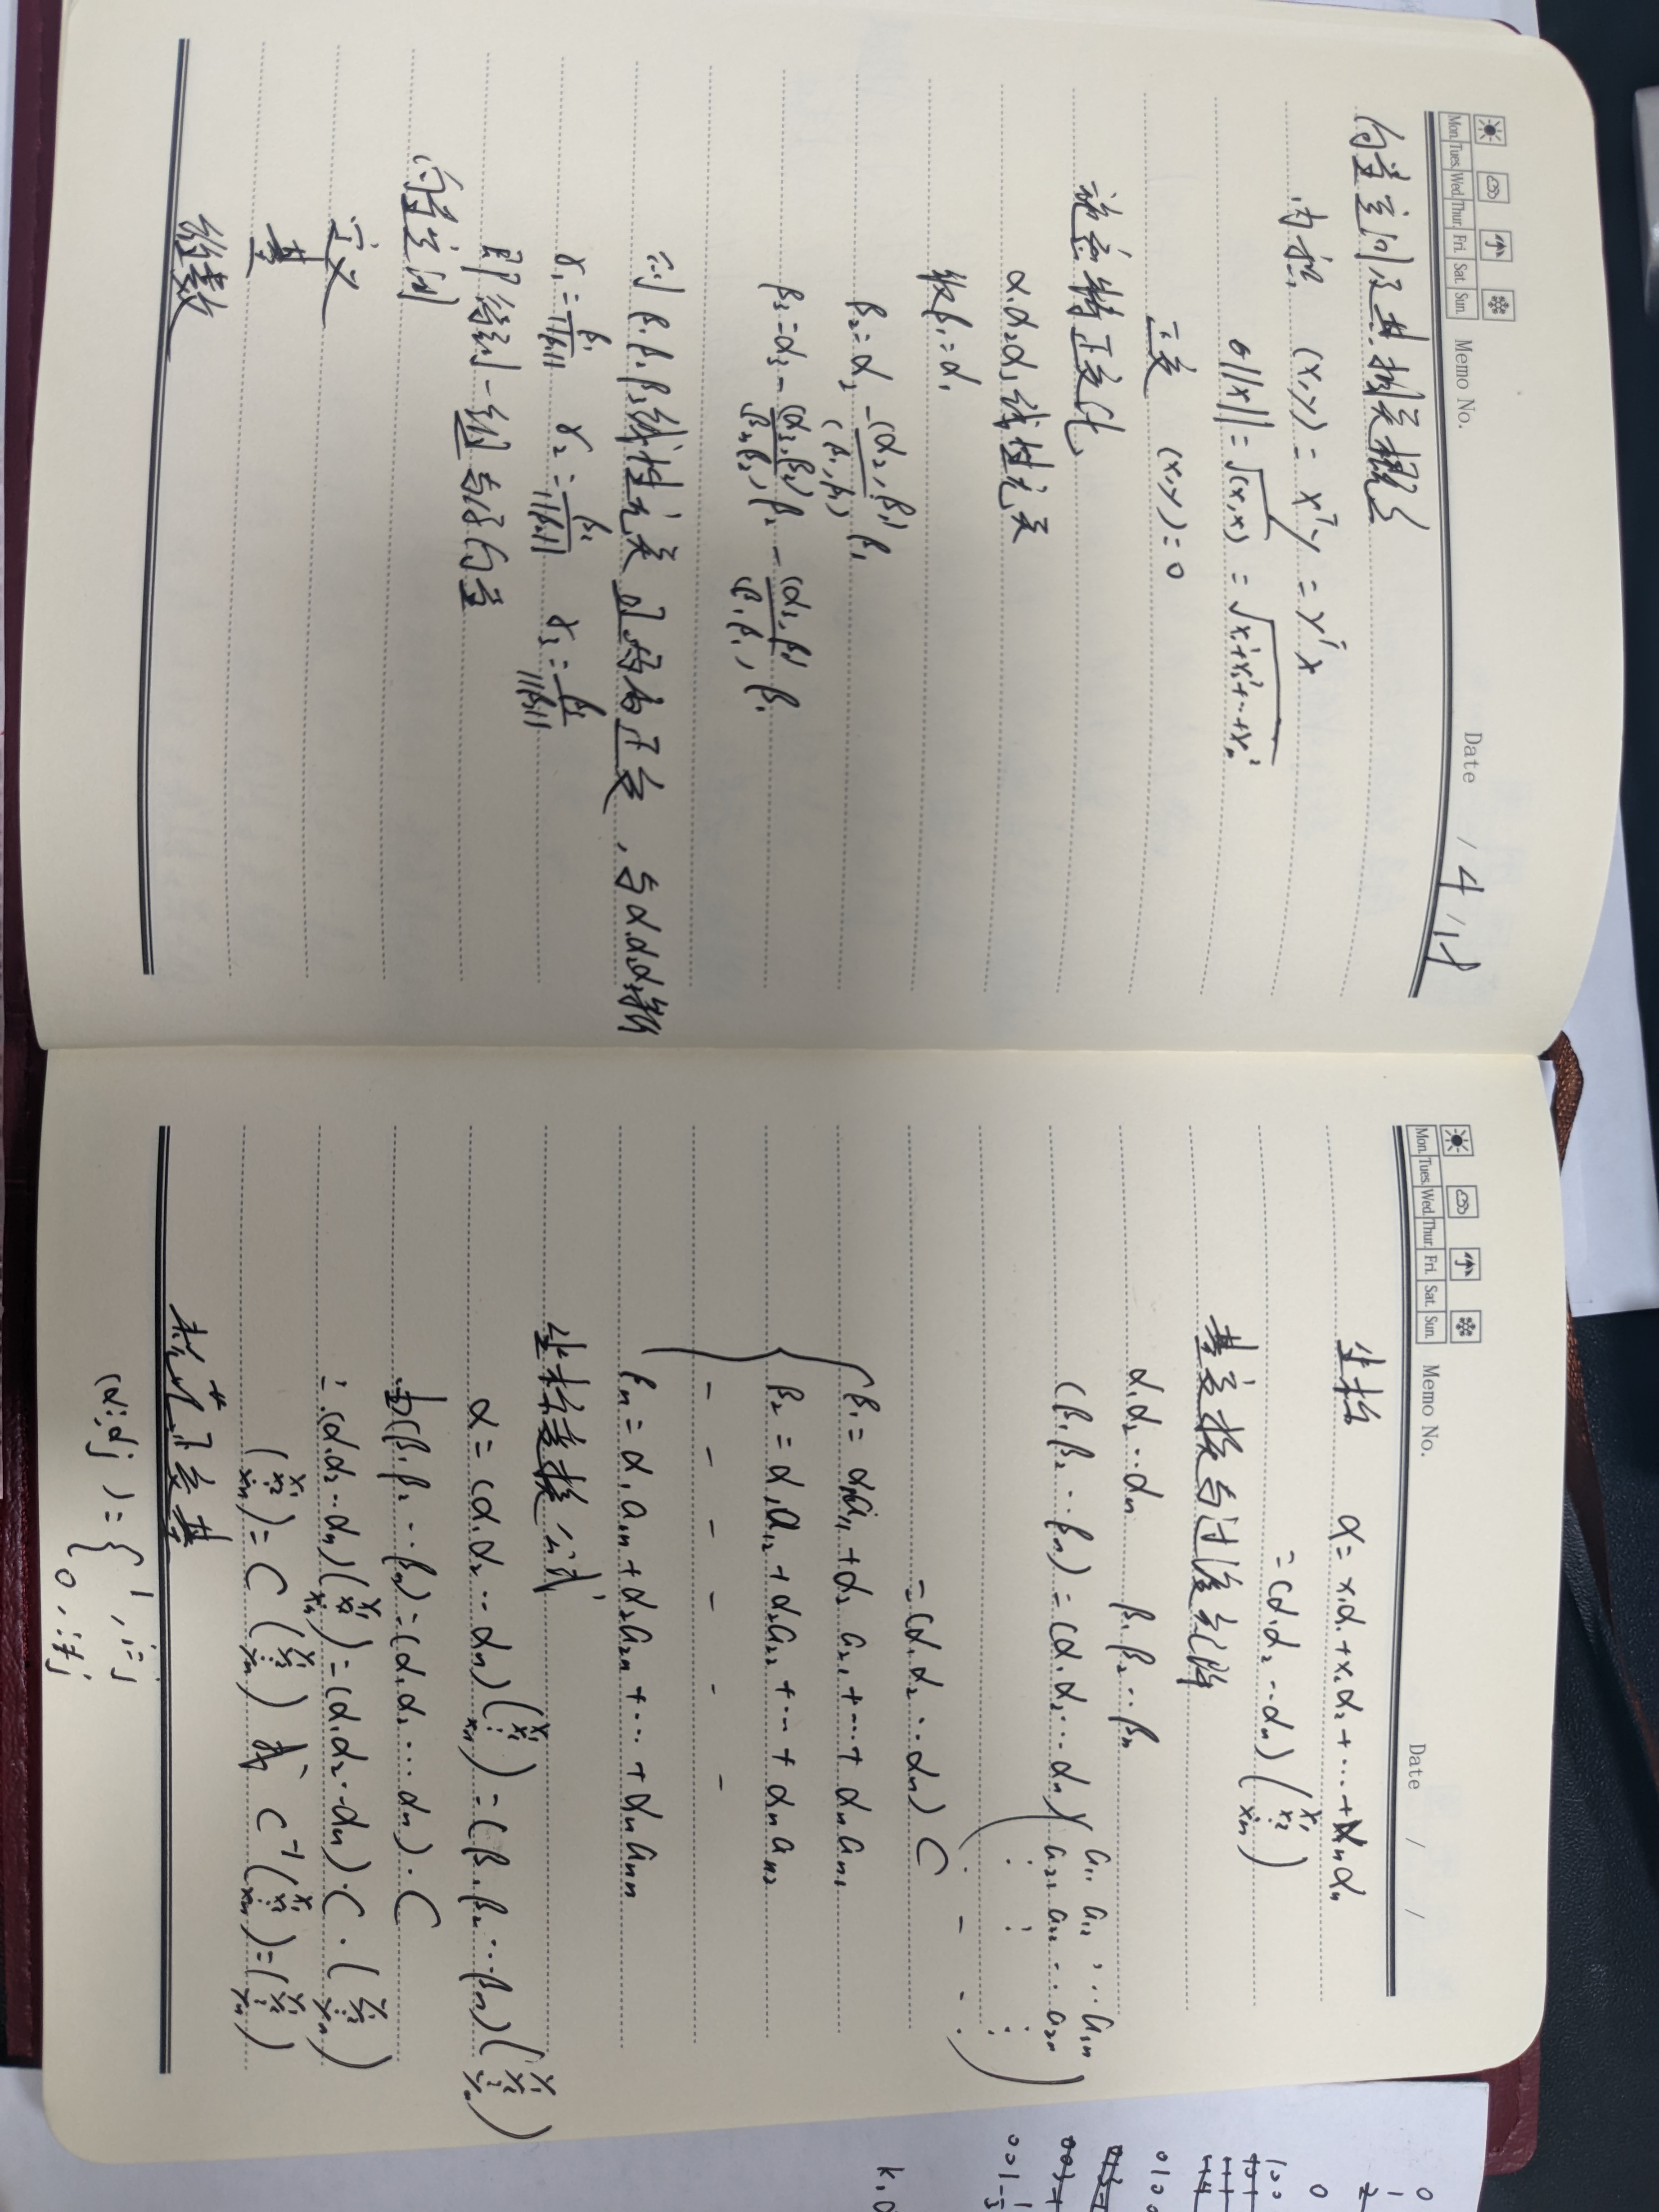 Mon. Tues. Wed. Thur. Fri. Sat. Sun.
Memo No.
Date / 4 / 18
向量空间及其相关概念
内积 (x,y) = xᵀy = yᵀx
||x|| = √(x,x) = √x₁²+x₂²+…+xₙ²
正交 (x,y)=0
施密特正交化
α₁α₂α₃线性无关
取β₁=α₁
β₂=α₂ - (α₂,β₁)/(β₁,β₁) β₁
β₃=α₃ - (α₃,β₂)/(β₂,β₂) β₂ - (α₃,β₁)/(β₁,β₁) β₁
则 β₁ β₂ β₃线性无关 且两两正交,与α₁α₂α₃等价
γ₁=β₁/||β₁|| γ₂=β₂/||β₂|| γ₃=β₃/||β₃||
即得到一组 向量
向量空间
定义
基
维数
Mon. Tues. Wed. Thur. Fri. Sat. Sun.
Memo No.
Date / /
坐标 α= x₁α₁+x₂α₂+…+xₙαₙ
=(α₁α₂…αₙ)(x₁ x₂ ⋮ xₙ)
基变换与过渡矩阵
α₁α₂…αₙ β₁β₂…βₙ
(β₁β₂…βₙ)=(α₁α₂…αₙ)(a₁₁ a₁₂ … a₁ₙ
a₂₁ a₂₂ … a₂ₙ
⋮ ⋮ ⋮)
=(α₁α₂…αₙ) C
{β₁= α₁a₁₁+α₂a₂₁+…+αₙaₙ₁
β₂=α₁a₁₂+α₂a₂₂+…+αₙaₙ₂
- - - - - -
βₙ=α₁a₁ₙ+α₂a₂ₙ+…+αₙaₙₙ
坐标变换公式
α=(α₁α₂…αₙ)(x₁ x₂ ⋮ xₙ)=(β₁β₂…βₙ)(y₁ y₂ ⋮ yₙ)
由(β₁β₂…βₙ)=(α₁α₂…αₙ)·C
∴(α₁α₂…αₙ)(x₁ x₂ ⋮ xₙ)=(α₁α₂…αₙ)·C·(y₁ y₂ ⋮ yₙ)
(x₁ x₂ ⋮ xₙ)=C(y₁ y₂ ⋮ yₙ) 或 C⁻¹(x₁ x₂ ⋮ xₙ)=(y₁ y₂ ⋮ yₙ)
标准正交基
(αᵢαⱼ)={1, i=j
0, i≠j